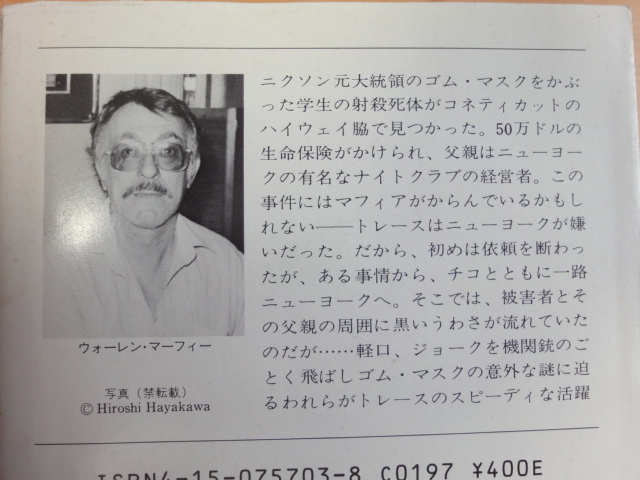 ニクソン元大統領のゴム・マスクをかぶ
った学生の射殺死体がコネティカットの
ハイウェイ脇で見つかった。50万ドルの
生命保険がかけられ、父親はニューヨー
クの有名なナイトクラブの経営者。この
事件にはマフィアがからんでいるかもし
れない――トレースはニューヨークが嫌
いだった。だから、初めは依頼を断わっ
たが、ある事情から、チコとともに一路
ニューヨークへ。そこでは、被害者とそ
の父親の周囲に黒いうわさが流れていた
のだが……軽口、ジョークを機関銃のご
とく飛ばしゴム・マスクの意外な謎に迫
るわれらがトレースのスピーディな活躍
ウォーレン・マーフィー
写真（禁転載）
© Hiroshi Hayakawa
ISBN4-15-075703-8 C0197 ¥400E